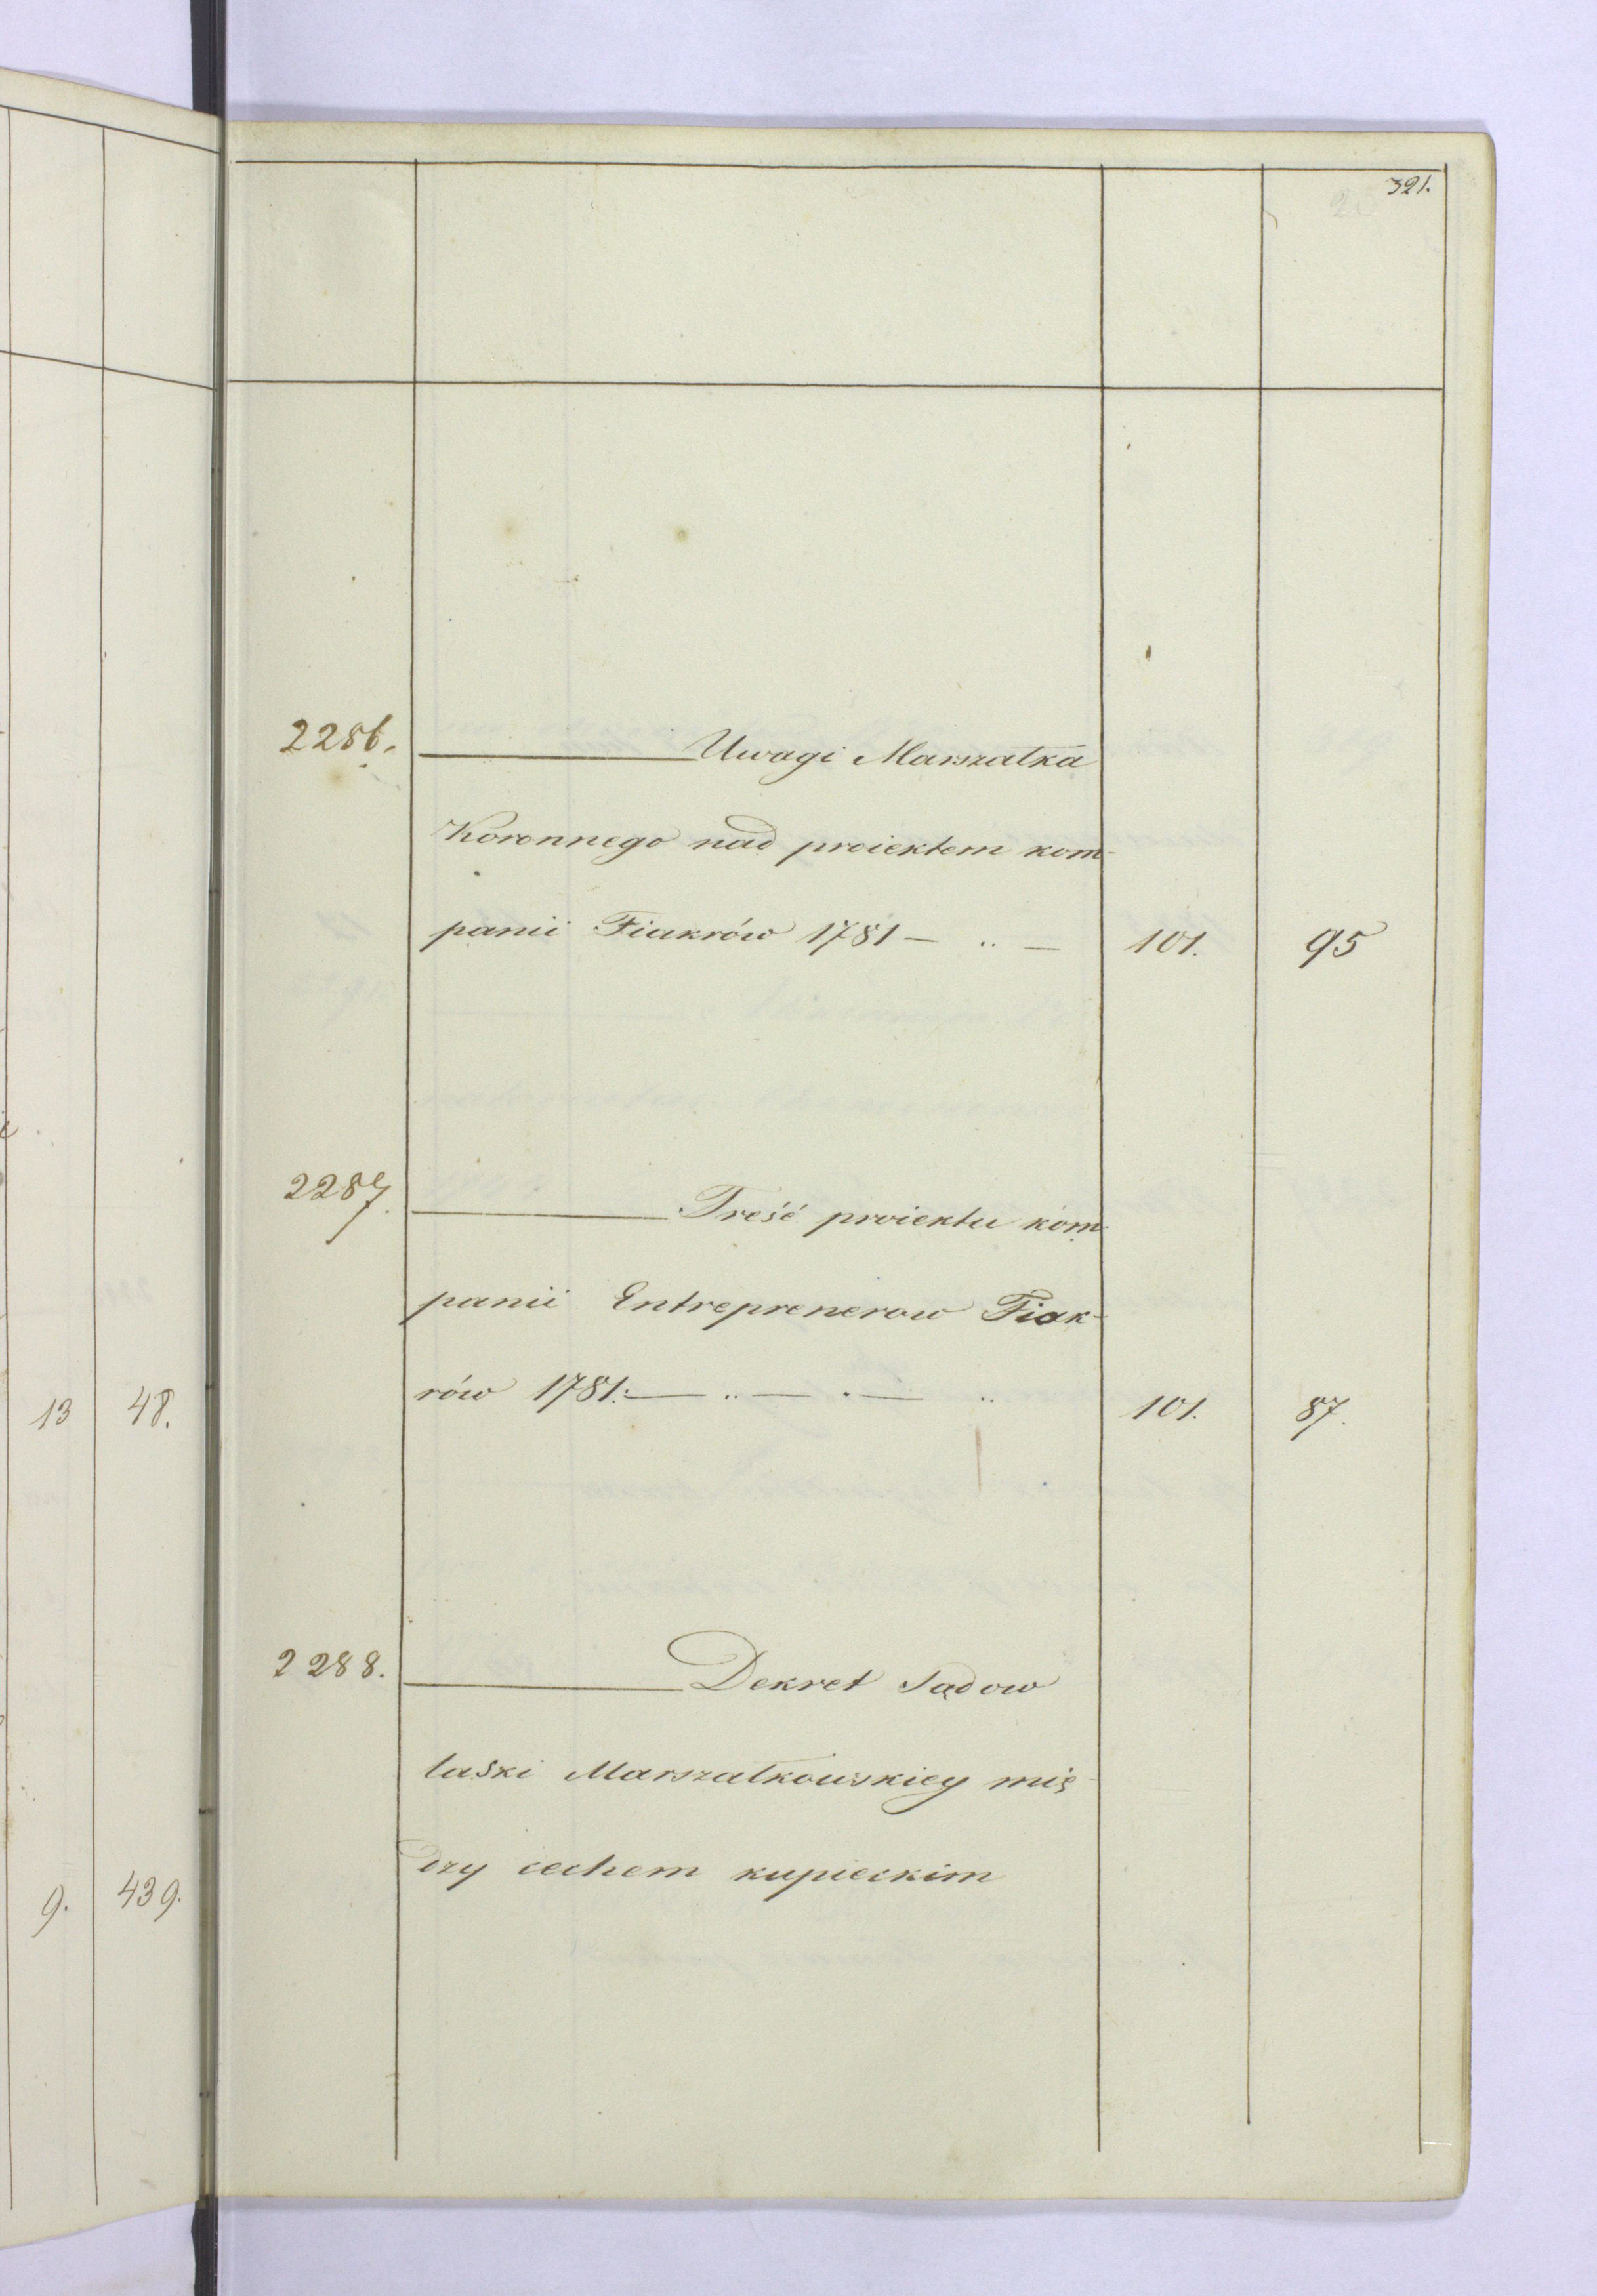 321.
2286. Uwagi Marszałka
Koronnego nad proiektem kom-
panii Fiakrów 1781 — .. — 101. 95
2287. Treść proiektu kom-
panii Entreprenerow Fiak-
rów 1781. — .. — . — .. 101. 87.
13 48.
2288. Dekret Sądow
laski Marszałkowskiey mię-
dzy cechem kupieckim
9. 439.